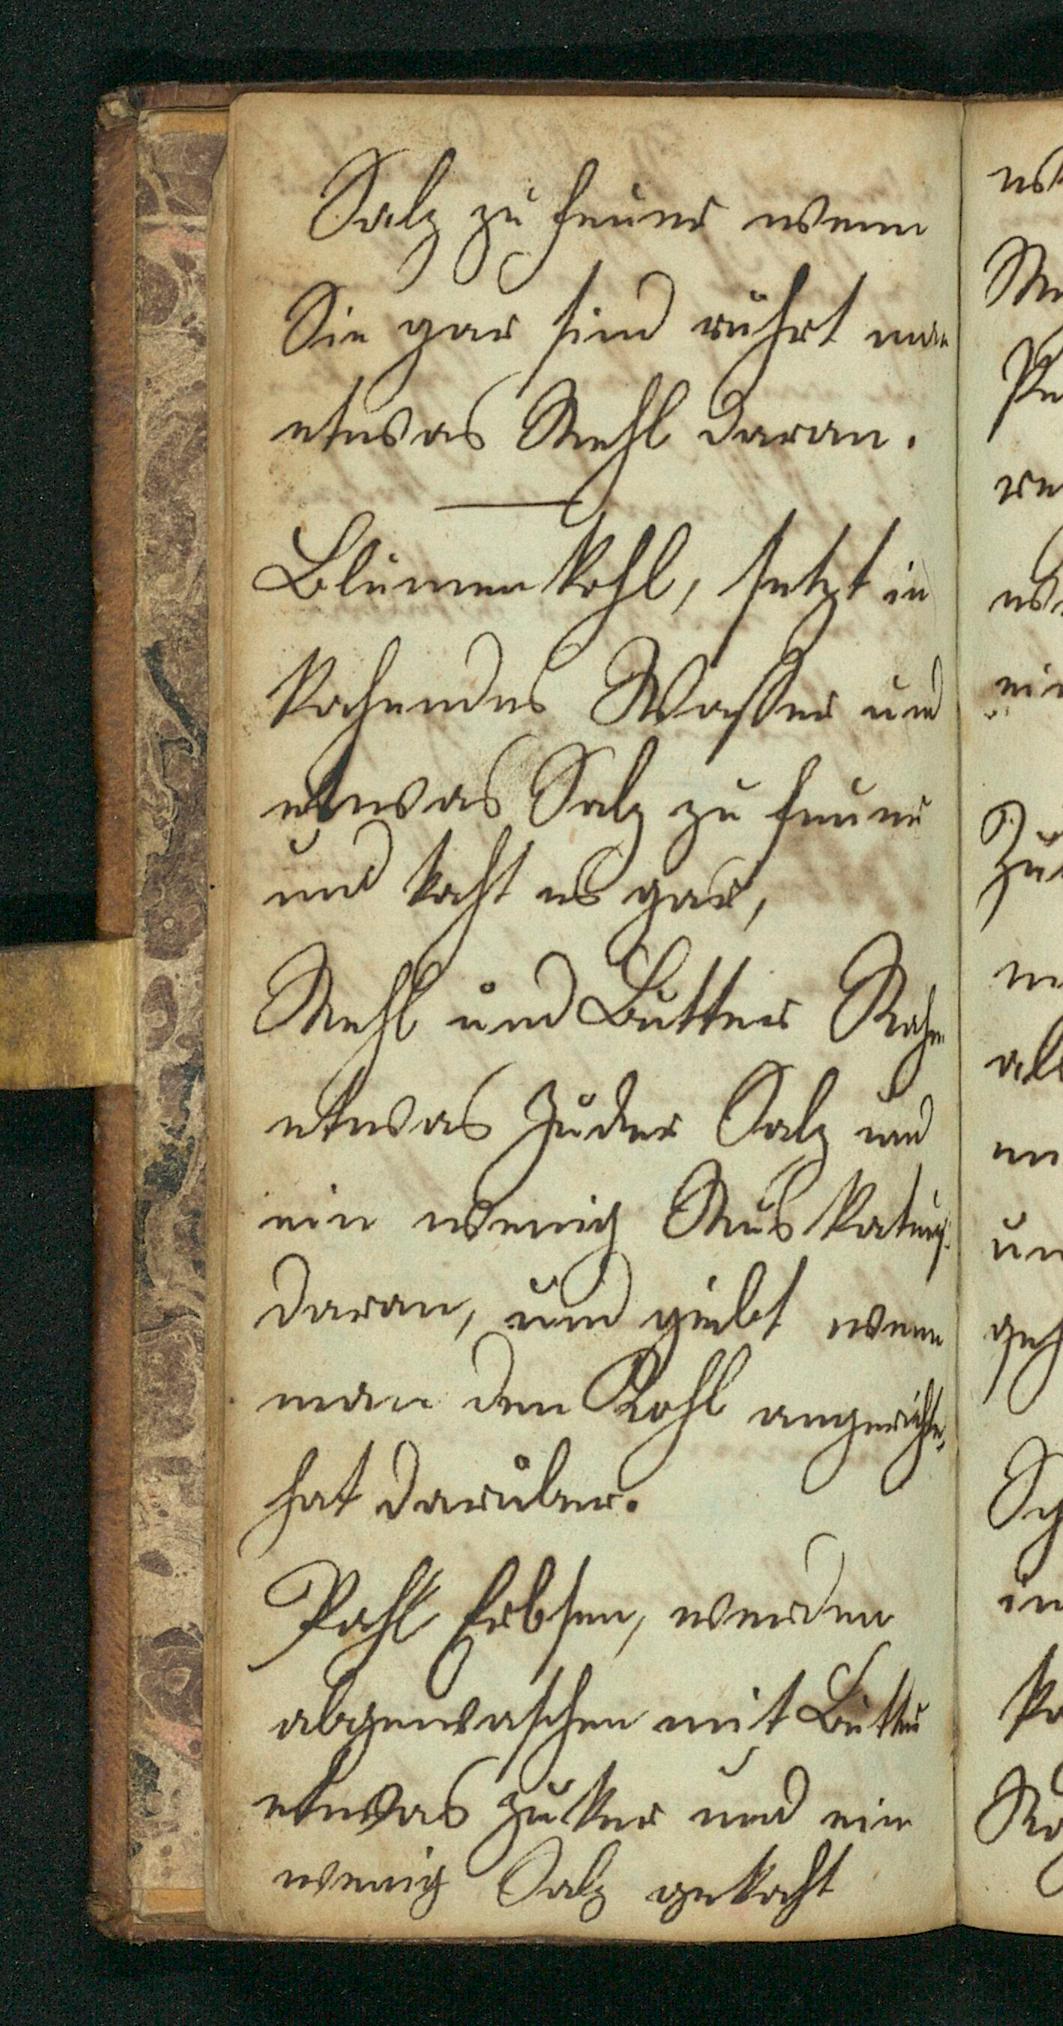 Salz zu feuer wenn
Sie gar sind rührt man
etwas Mehl daran.
Blumenkohl, setzt in
kochendes Wasser und
etwas Salz zu feuer
und kocht es gar,
Mehl und Butter Rahm
etwas Zucker Salz und
ein wenig Muskatnuß
daran, und giebt wenn
man den Kohl angerichtet
hat darüber.
Pahl Erbsen, werden
abgewaschen mit Butter
etwas zuker und ein
wenig Salz gekocht